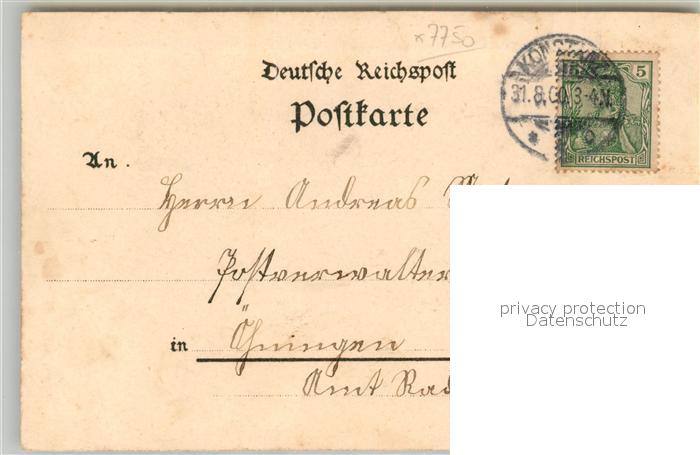 *7750
Deutsche Reichspost
Postkarte
KONSTANZ
31.8.00.3-4.N.
5
REICHSPOST
An.
Herrn Andreas
Postverwalter
in Öhningen
Amt Rad
privacy protection
Datenschutz